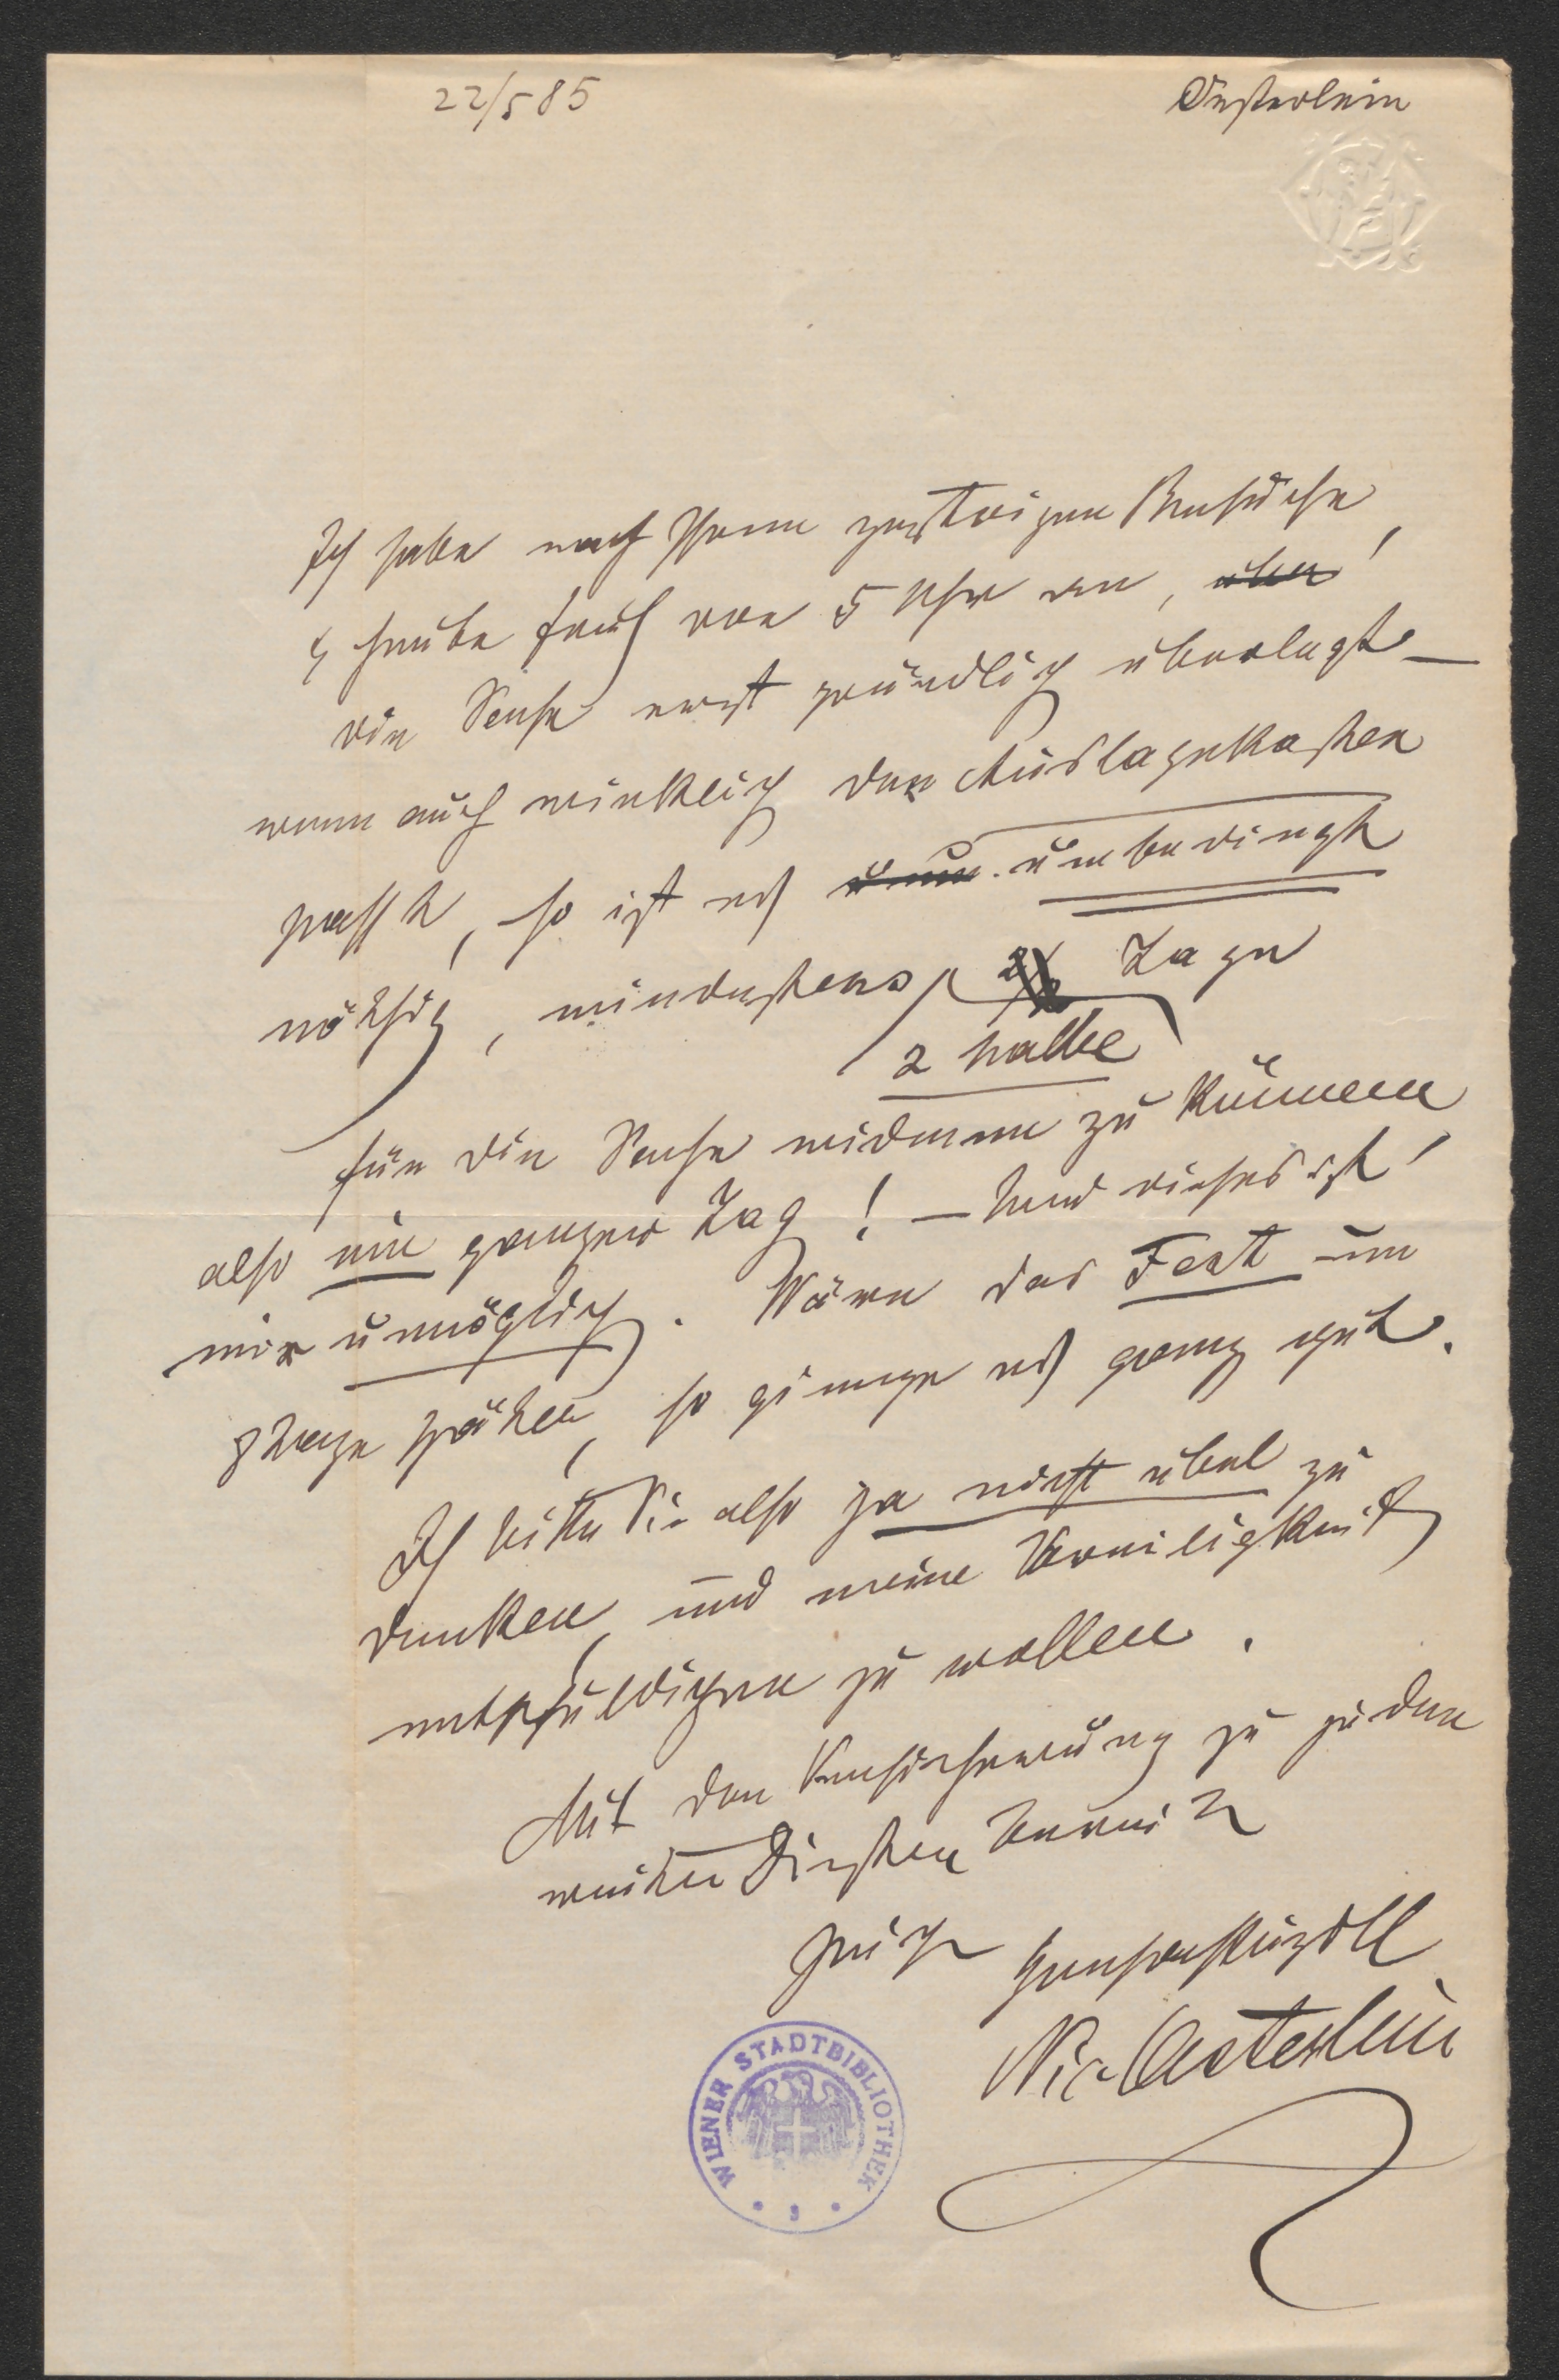 22/5 85
Oesterlein
Ich habe nach Ihrem gestrigen Besuche,
& heute früh von 5 Uhr an, über
die Sache erst gründlich überlegt –
wenn auch wirklich der Auslagekasten
passt, so ist es unbedingt
nöthig, mindestens Tage
2 halbe
für die Sache widmen zu können
also ein ganzer Tag! – Und dieses ist
mir unmöglich. Wäre das Fest um
8 Tage später, so ginge es ganz gut.
Ich bitte Sie also ja nicht übel zu
denken, und meine Voreiligkeit
entschuldigen zu wollen.
Mit der Versicherung zu jeder
weiter Diensten bereit
hochachtungsvoll
Nic Oesterlein
WIENER STADTBIBLIOTHEK